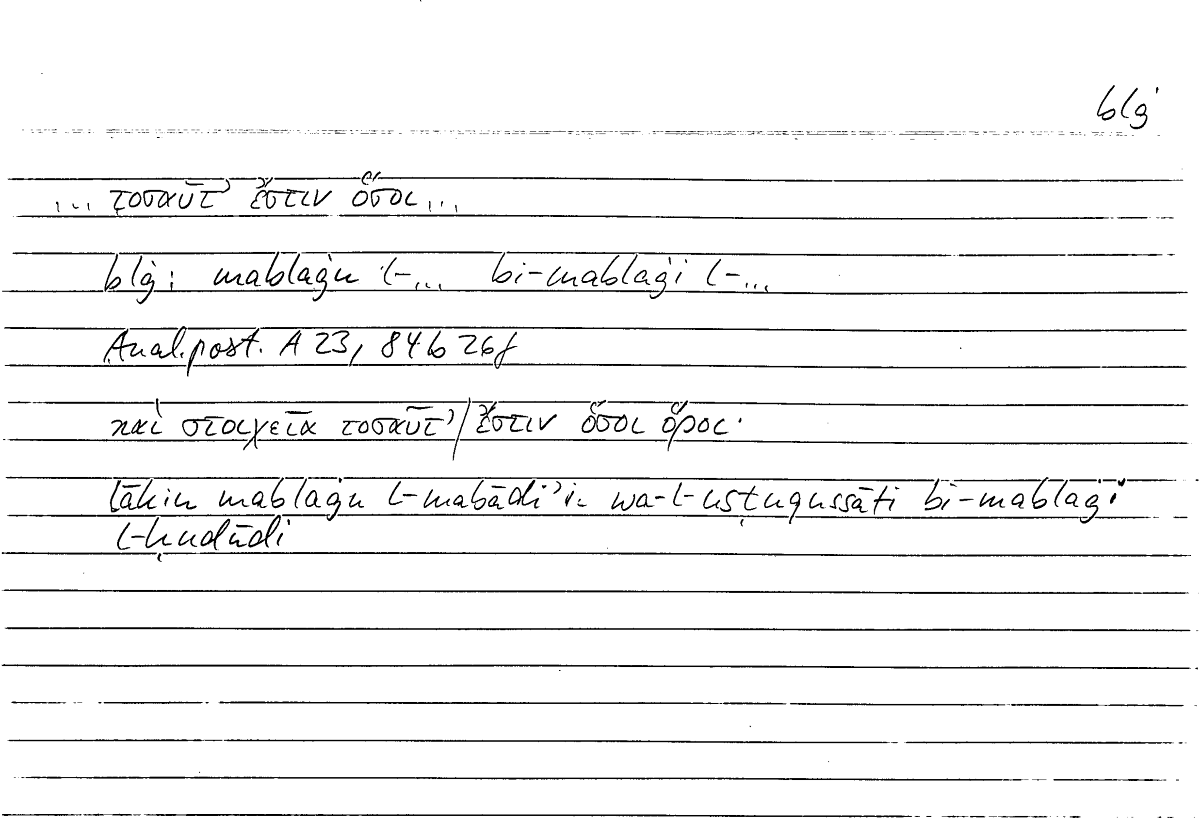 blġ
... τοσαῦτ’ ἔστιν ὅσοι...
blġ: mablaġu l-... bi-mablaġi l-...
Anal.post. A 23, 84 b 26f
καὶ στοιχεῖα τοσαῦτ’/ἔστιν ὅσοι ὅροι·
lākin mablaġu l-mabādi’i- wa-l-usṭuqussāti bi-mablaġi
l-ḥudūdi